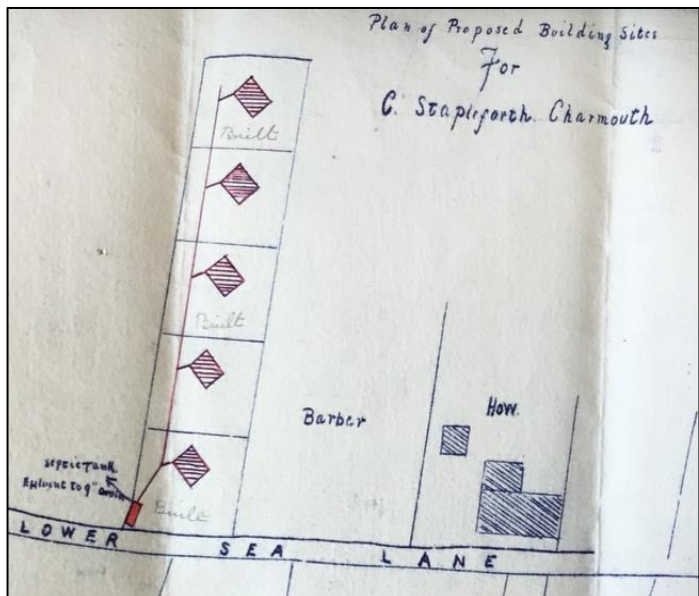 Plan of Proposed Building Sites
For
C. Stapleforth. Charmouth
Built
Built
Barber
How.
Septic Tank
Effluent to 9" drain
Built
LOWER SEA LANE